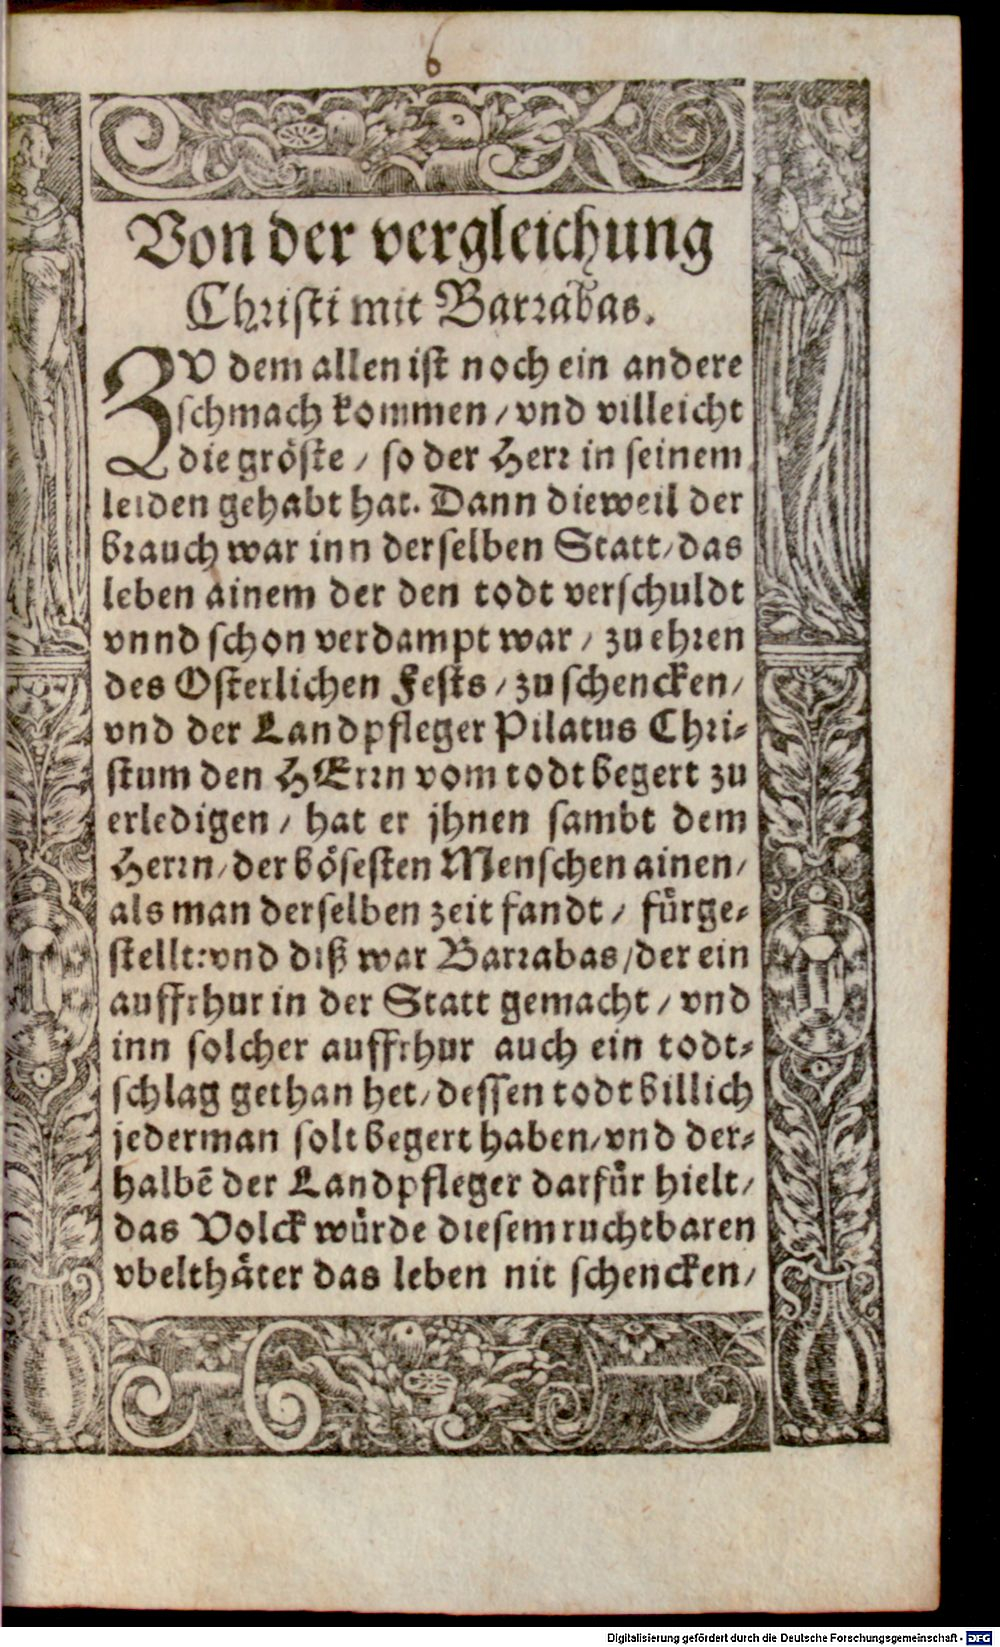 6
Von der vergleichung
Christi mit Barrabas.
ZV dem allen ist noch ein andere
schmach kommen / vnd villeicht
die gröste / so der Herr in seinem
leiden gehabt hat. Dann dieweil der
brauch war inn derselben Statt / das
leben ainem der den todt verschuldt
vnnd schon verdampt war / zu ehren
des Osterlichen Fests / zu schencken /
vnd der Landpfleger Pilatus Chri-
stum den HErrn vom todt begert zu
erledigen / hat er jhnen sambt dem
Herrn / der bösesten Menschen ainen /
als man derselben zeit fandt / fürge-
stellt: vnd diß war Barrabas / der ein
auffrhur in der Statt gemacht / vnd
inn solcher auffrhur auch ein todt-
schlag gethan het / dessen todt billich
jederman solt begert haben / vnd der-
halbē der Landpfleger darfür hielt /
das Volck würde diesem ruchtbaren
vbelthäter das leben nit schencken /
Digitalisierung gefördert durch die Deutsche Forschungsgemeinschaft - DFG